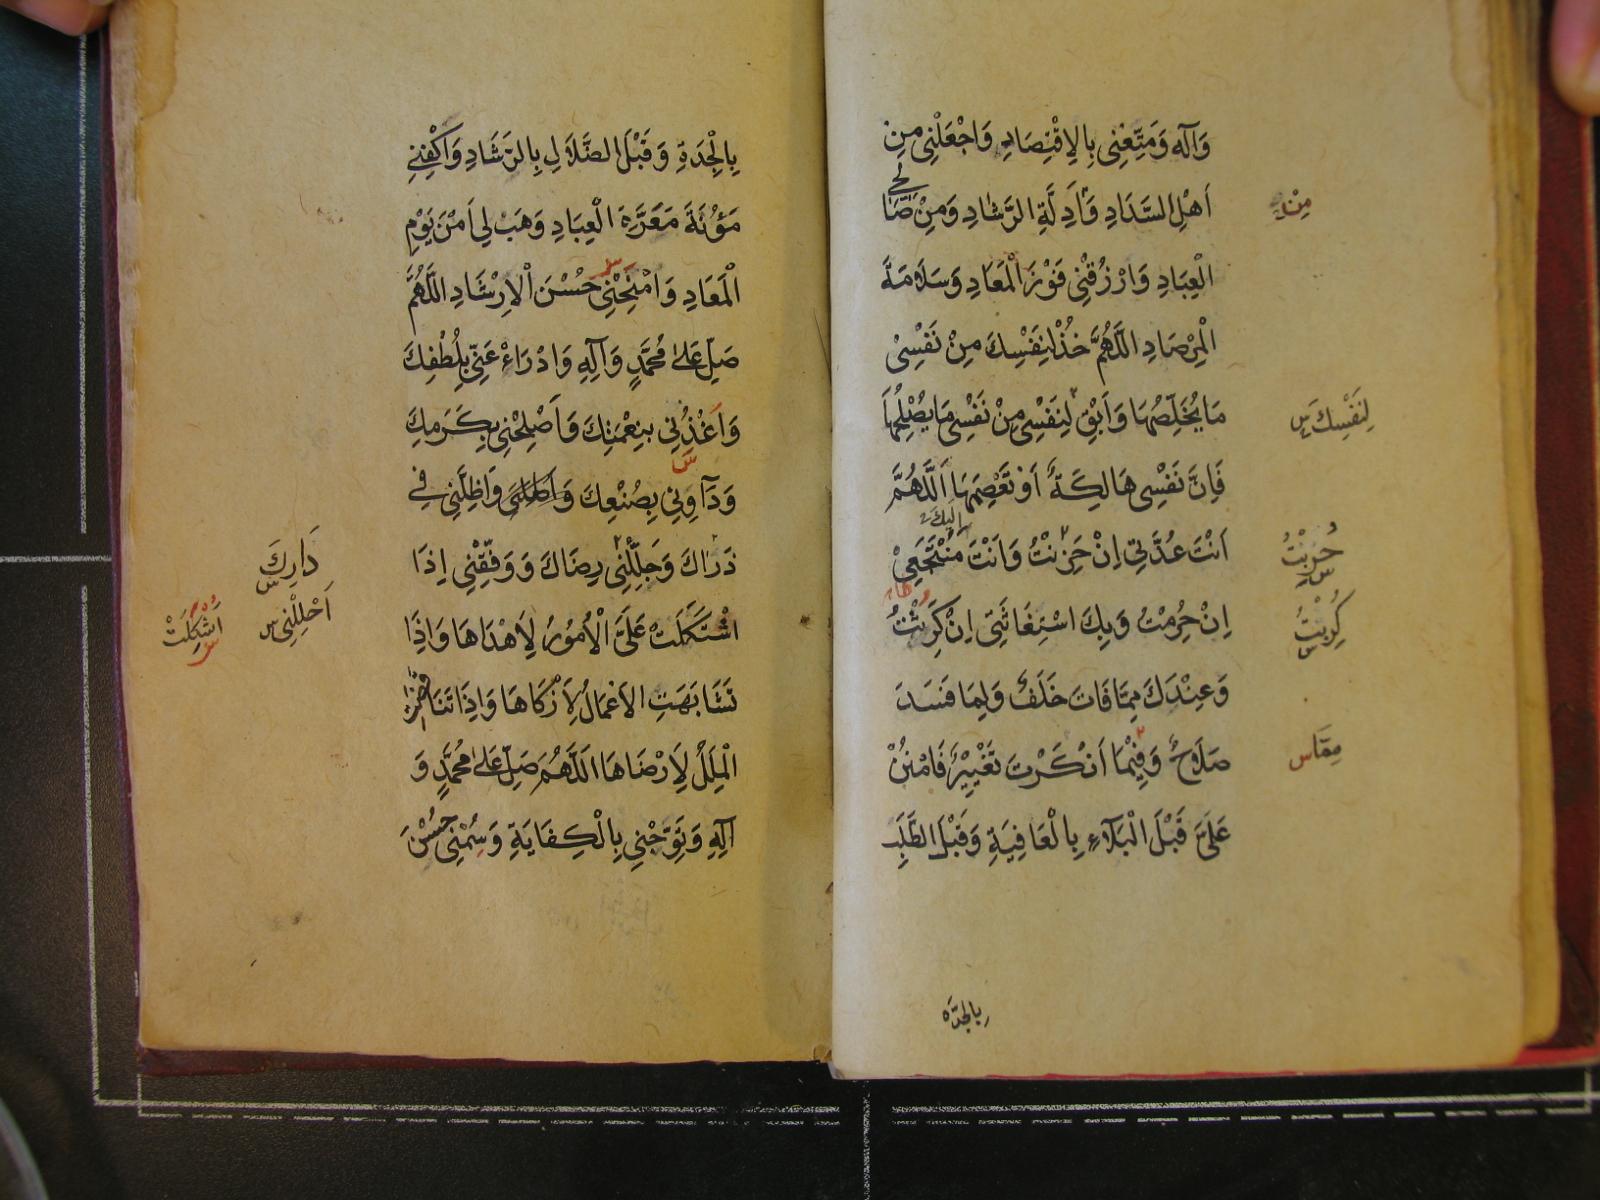 وَآلِهِ وَمَتِّعْنِي بِالِاقْتِصَادِ وَاجْعَلْنِي مِنْ
اَهْلِ السَّدَادِ وَاَدِلَّةِ الرَّشَادِ وَمِنْ صَالِحِي
مِنْ
الْعِبَادِ وَارْزُقْنِي فَوْزَ الْمَعَادِ وَسَلَامَةَ
الْمِرْصَادِ اَللَّهُمَّ خُذْ لِنَفْسِكَ مِنْ نَفْسِي
مَا يُخَلِّصُهَا وَاَبْقِ لِنَفْسِي مِنْ نَفْسِي مَا يُصْلِحُهَا
لِنَفْسِكَ س
فَاِنَّ نَفْسِي هَالِكَةٌ اَوْ تَعْصِمَهَا اَللَّهُمَّ
اَنْتَ عُدَّتِي اِنْ حَزِنْتُ وَاَنْتَ مُنْتَجَعِي
اليك
حُرِبْتُ س
اِنْ حُرِمْتُ وَبِكَ اسْتِغَاثَتِي اِنْ كَرِثْتُ
كُرِبْتُ س
وَعِنْدَكَ مِمَّا فَاتَ خَلَفٌ وَلِمَا فَسَدَ
صَلَاحٌ وَفِيْمَا اَنْكَرْتَ تَغْيِيْرٌ فَامْنُنْ
مِمَّا س
عَلَيَّ قَبْلَ الْبَلَآءِ بِالْعَافِيَةِ وَقَبْلَ الطَّلَبِ
بالجدة
بِالْجِدَةِ وَقَبْلَ الضَّلَالِ بِالرَّشَادِ وَاكْفِنِي
مَؤُنَةَ مَعَرَّةِ الْعِبَادِ وَهَبْ لِي اَمْنَ يَوْمِ
الْمَعَادِ وَامْنَحْنِي حُسْنَ الْاِرْشَادِ اَللَّهُمَّ
صَلِّ عَلٰى مُحَمَّدٍ وَآلِهِ وَادْرَاءْ عَنِّي بِلُطْفِكَ
وَاغْذُنِي بِنِعْمَتِكَ وَاَصْلِحْنِي بِكَرَمِكَ
وَدَاوِنِي بِصُنْعِكَ وَاَظِلَّنِي فِي
ذَرَاكَ وَجَلِّلْنِي رِضَاكَ وَوَفِّقْنِي اِذَا
دَارِكَ س
اشْتَكَلَتْ عَلَيَّ الْاُمُوْرُ لِاَهْدَاهَا وَاِذَا
اَحْلِلْنِي س
اُشْكِلَتْ س
تَشَابَهَتِ الْاَعْمَالُ لِاَزْكَاهَا وَاِذَا تَنَاقَضَتِ
الْمِلَلُ لِاَرْضَاهَا اَللَّهُمَّ صَلِّ عَلٰى مُحَمَّدٍ وَ
آلِهِ وَتَوِّجْنِي بِالْكِفَايَةِ وَسُمْنِي حُسْنَ